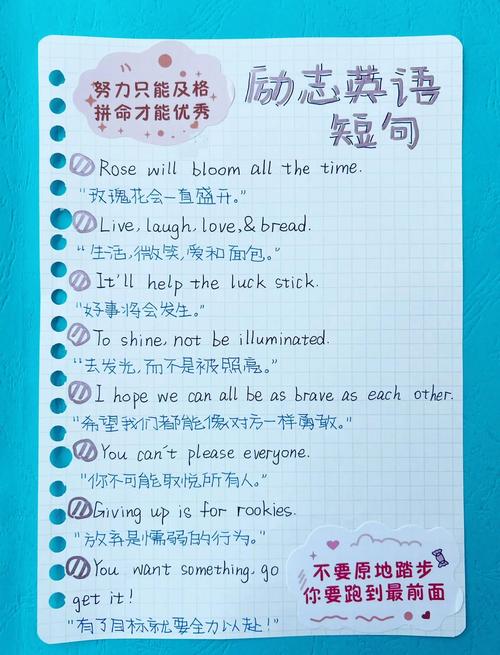 努力只能及格
拼命才能优秀
励志英语
短句
Rose will bloom all the time.
"玫瑰花会一直盛开。"
Live, laugh, love,& bread.
"生活,微笑,爱和面包。"
It'll help the luck stick.
"好事将会发生。"
To shine, not be illuminated.
"去发光,而不是被照亮。"
I hope we can all be as brave as each other.
"希望我们都能像对方一样勇敢。"
You can't please everyone.
"你不可能取悦所有人。"
Giving up is for rookies.
"放弃是懦弱的行为。"
You want something. go
get it!
"有了目标就要全力以赴!"
不要原地踏步
你要跑到最前面